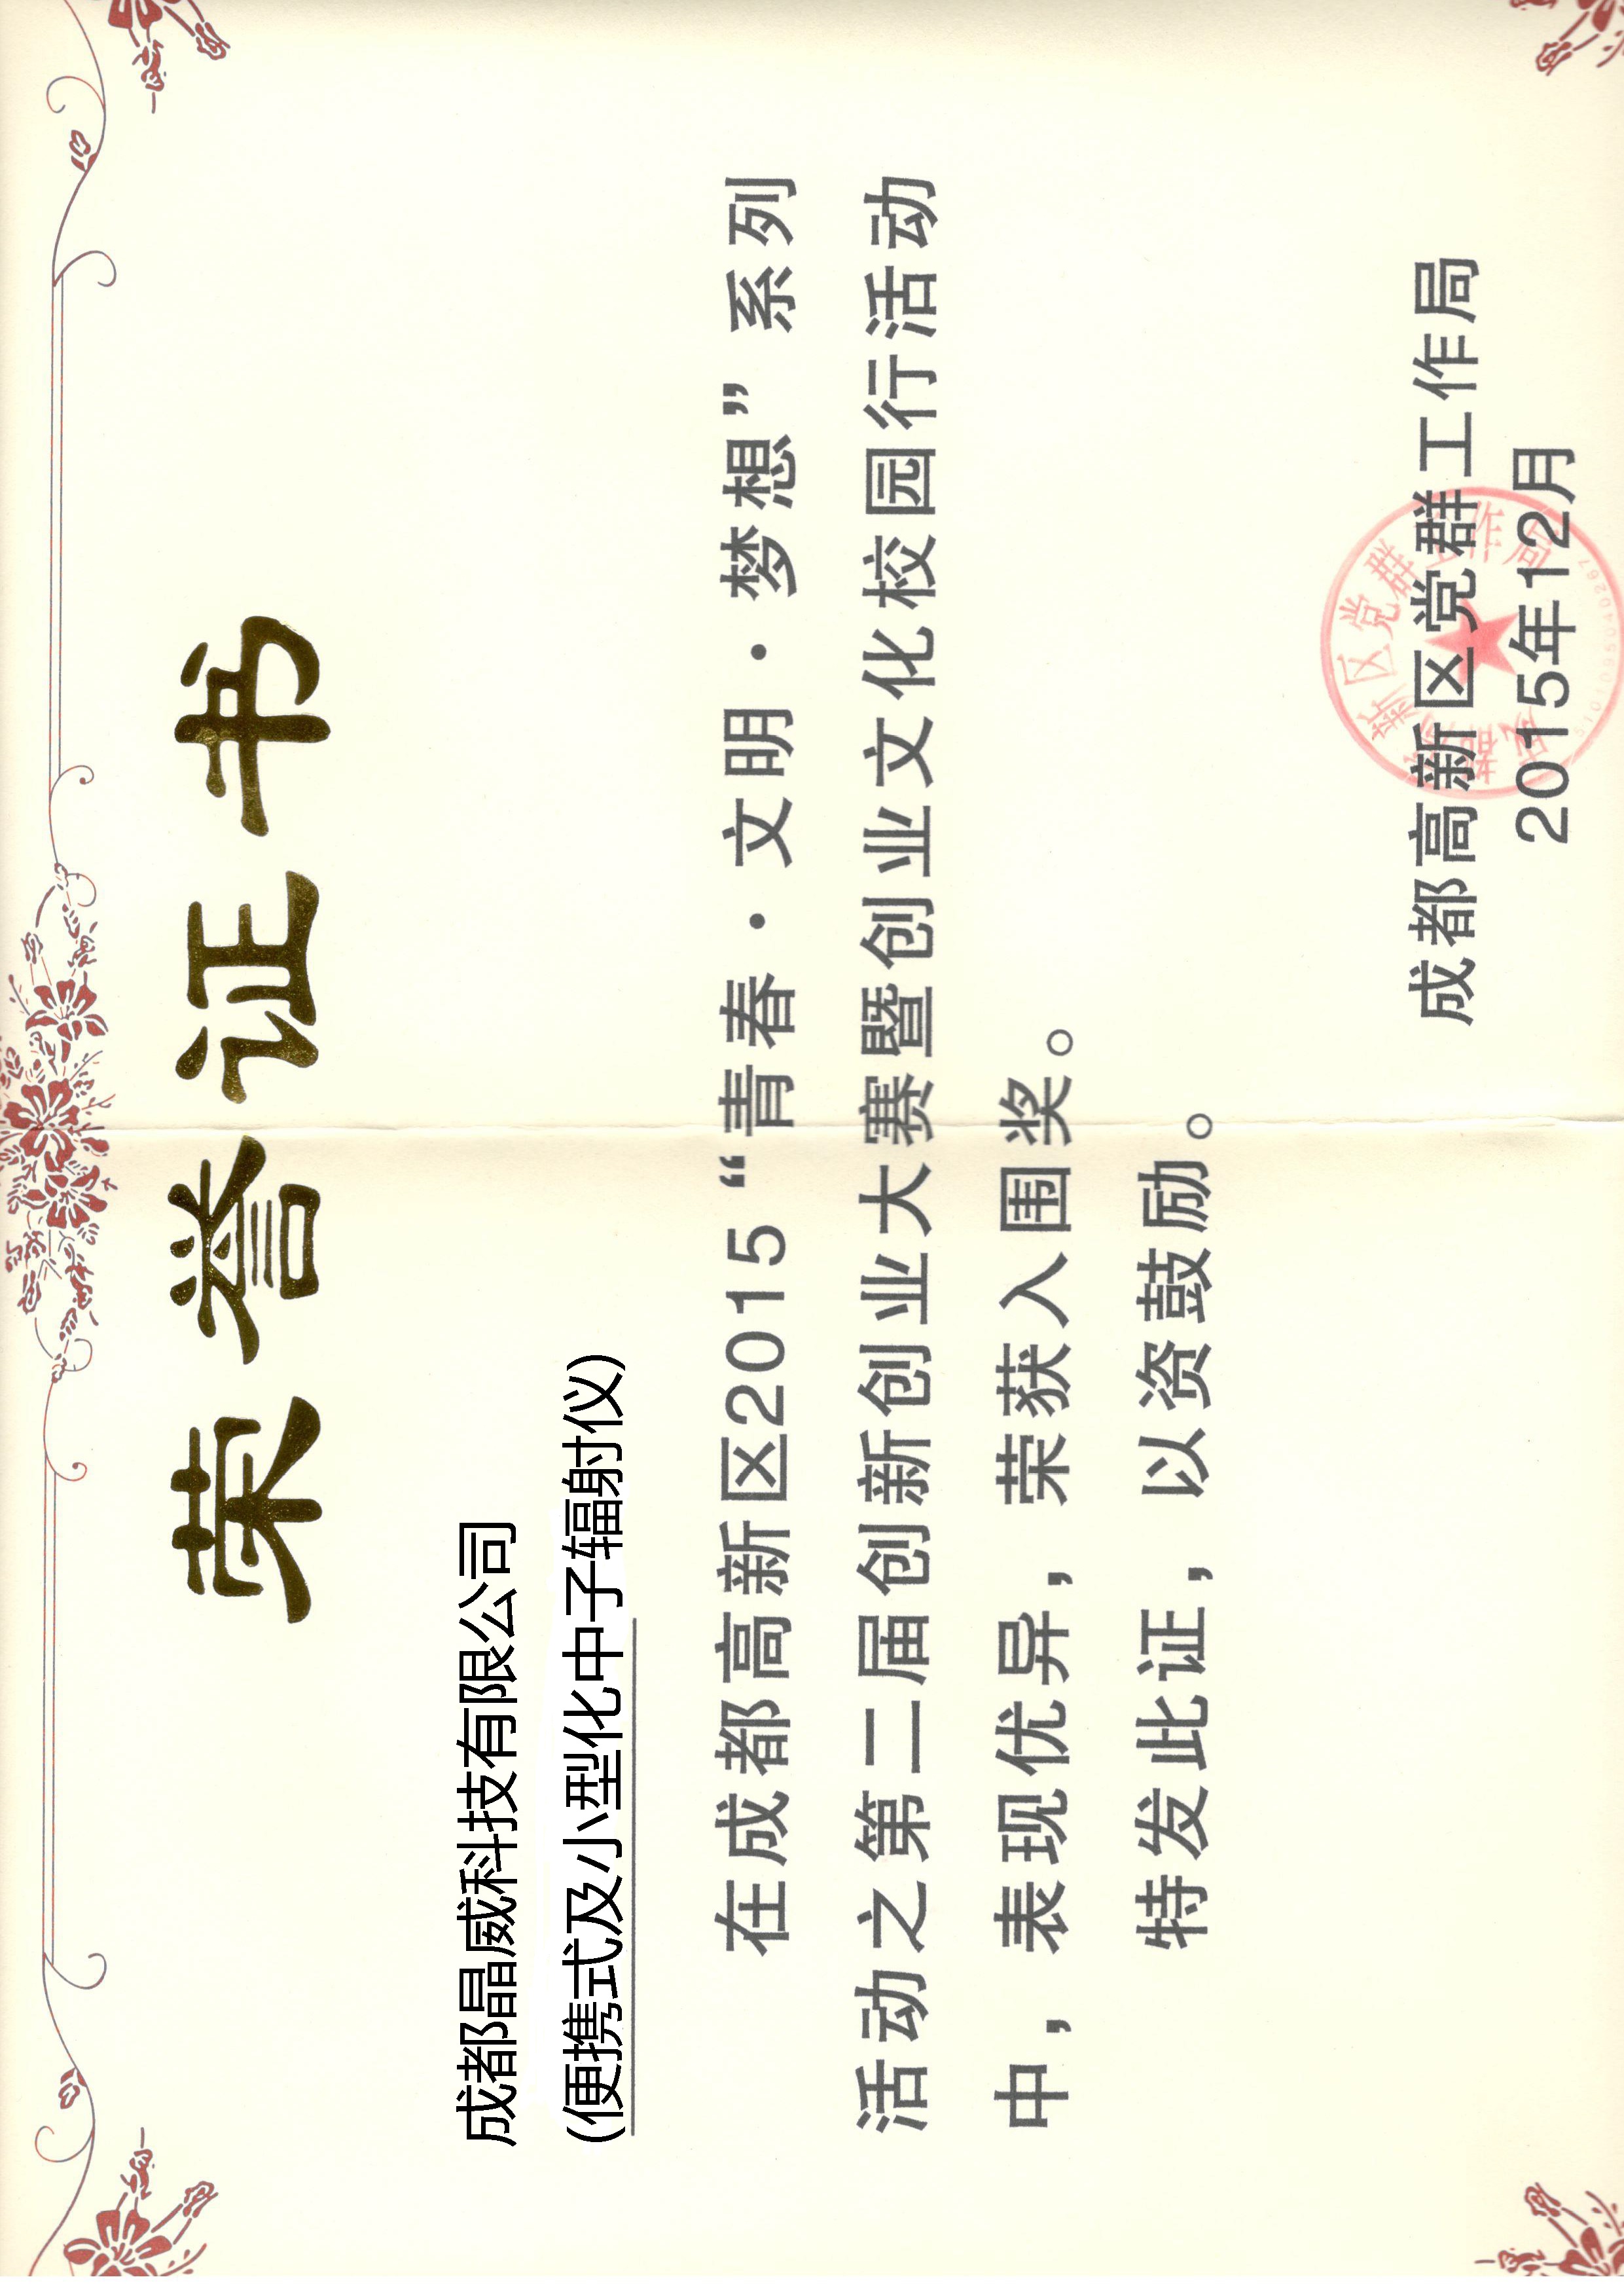 荣誉证书
成都晶威科技有限公司
(便携式及小型化中子辐射仪)
在成都高新区2015“青春·文明·梦想”系列
活动之第二届创新创业大赛暨创业文化校园行活动
中，表现优异，荣获入围奖。
特发此证，以资鼓励。
成都高新区党群工作局
2015年12月
成都高新区党群工作局